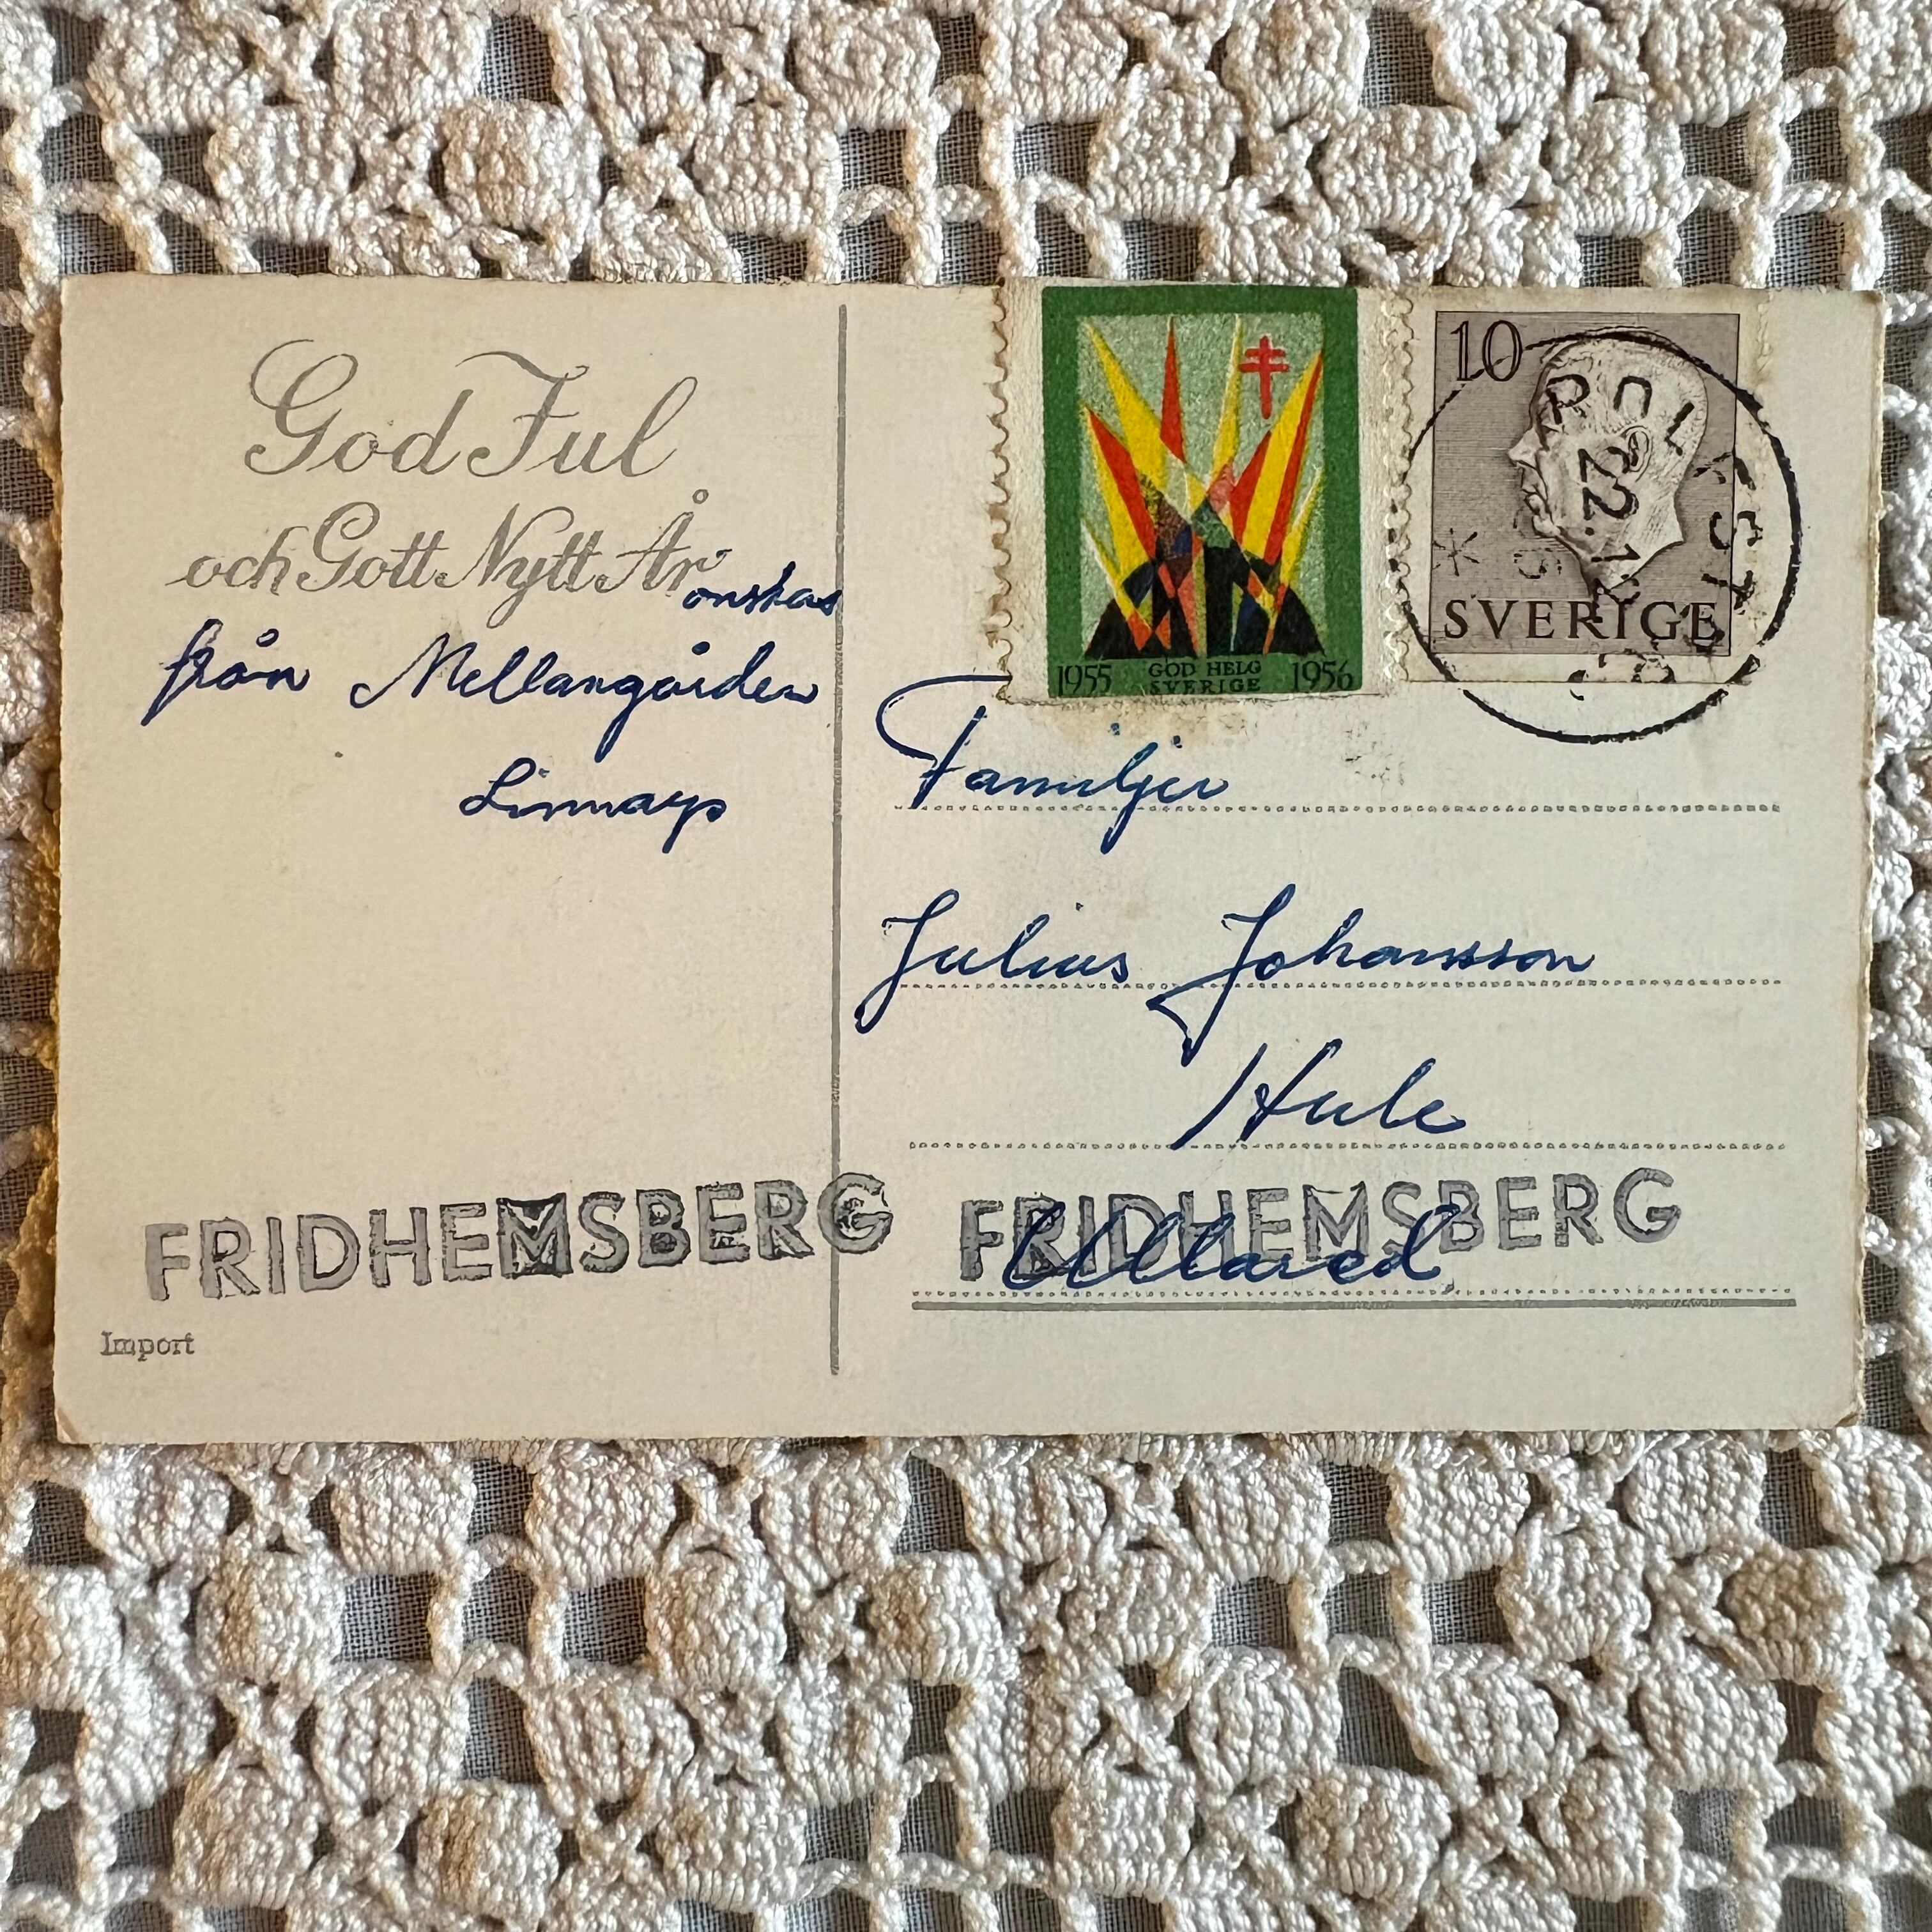 God Jul
och Gott Nytt År
önskas
från Mellangården
1955 GOD HELG 1956
SVERIGE
10
SVERIGE
22.12
Familjen
Julius Johansson
Hule
FRIDHEMSBERG
FRIDHEMSBERG
Ullared
Import